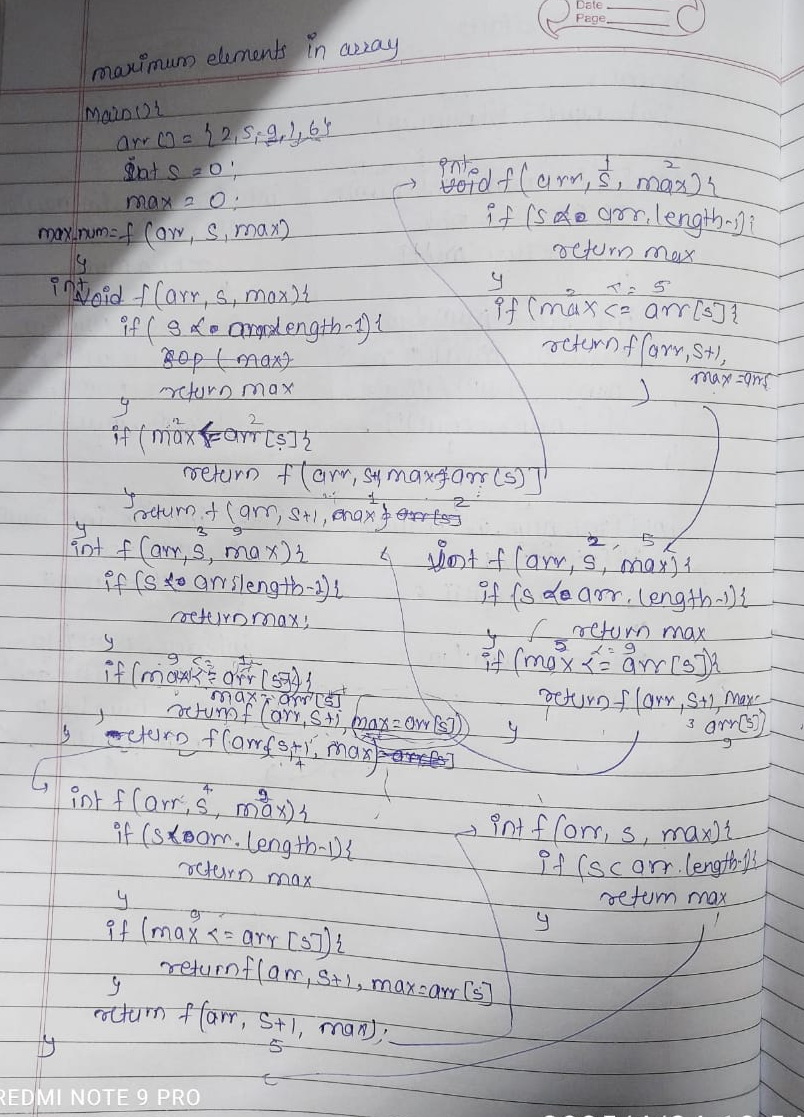 Date
Page
maximum elements in array
Main(){
arr() = {2,5,9,1,6}
int s = 0;
max = 0;
max.num=f (arr, s, max)
}
int
void f(arr, s, max){
if( s length-1){
sop (max)
return max
}
2 2
if (max <= arr[s]{
return f (arr, s+1 max=arr(s)]
}
return f (arr, s+1, max) arr[s]
1 2
}
1 2
int
void f( arr, s, max){
if (s arr.length-1){
return max
}
2 <= 5
if (max <= arr[s]{
return f(arr, s+1,
max=arr
)
3 9
int f(arr, s, max){
if (s arr length-1){
return max;
}
9 <= 1
if (max <= arr [s]){
max = arr[s]
return f (arr, s+1, max=arr[s])
}
return f(arr, s+1, max) arr[s]
4
2 5
int f (arr, s, max){
if (s arr.length-1){
return max
}
5 <= 9
if (max <= arr[s]){
return f (arr, s+1, max=
3 arr[s])
9
}
4 9
int f (arr, s, max){
if (s arr.length-1){
return max
}
9
if (max <= arr [s]){
return f(arr, s+1, max=arr[s]
}
return f (arr, s+1, max);
5
}
int f (arr, s, max){
if (s< arr.length-1){
return max
}
REDMI NOTE 9 PRO